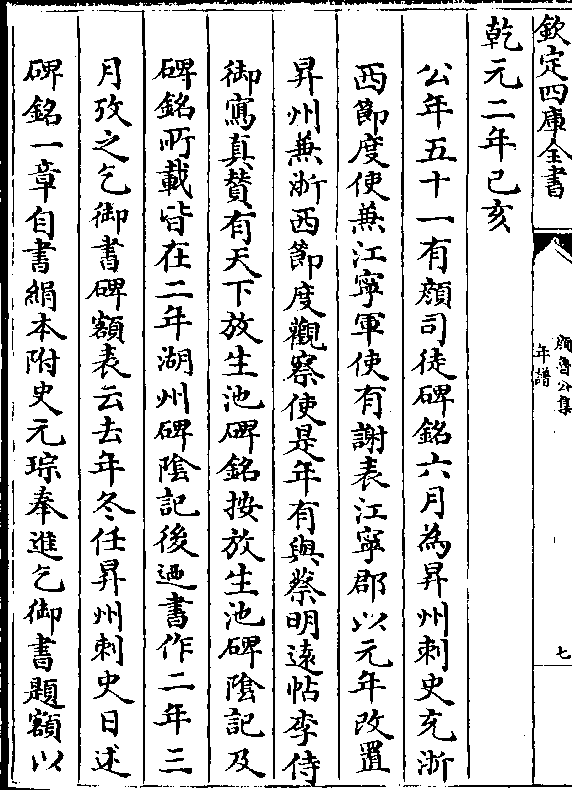 欽定四庫全書
顔魯公集
年譜
七
乾元二年己亥
公年五十一有顔司徒碑銘六月為昇州刺史充浙
西節度使兼江寧軍使有謝表江寧郡以元年改置
昇州兼浙西節度觀察使是年有與蔡明遠帖李侍
御寫真賛有天下放生池碑銘按放生池碑隂記及
碑銘所載皆在二年湖州碑隂記後廼書作二年三
月攷之乞御書碑額表云去年冬任昇州刺史日述
碑銘一章自書絹本附史元琮奉進乞御書題額以